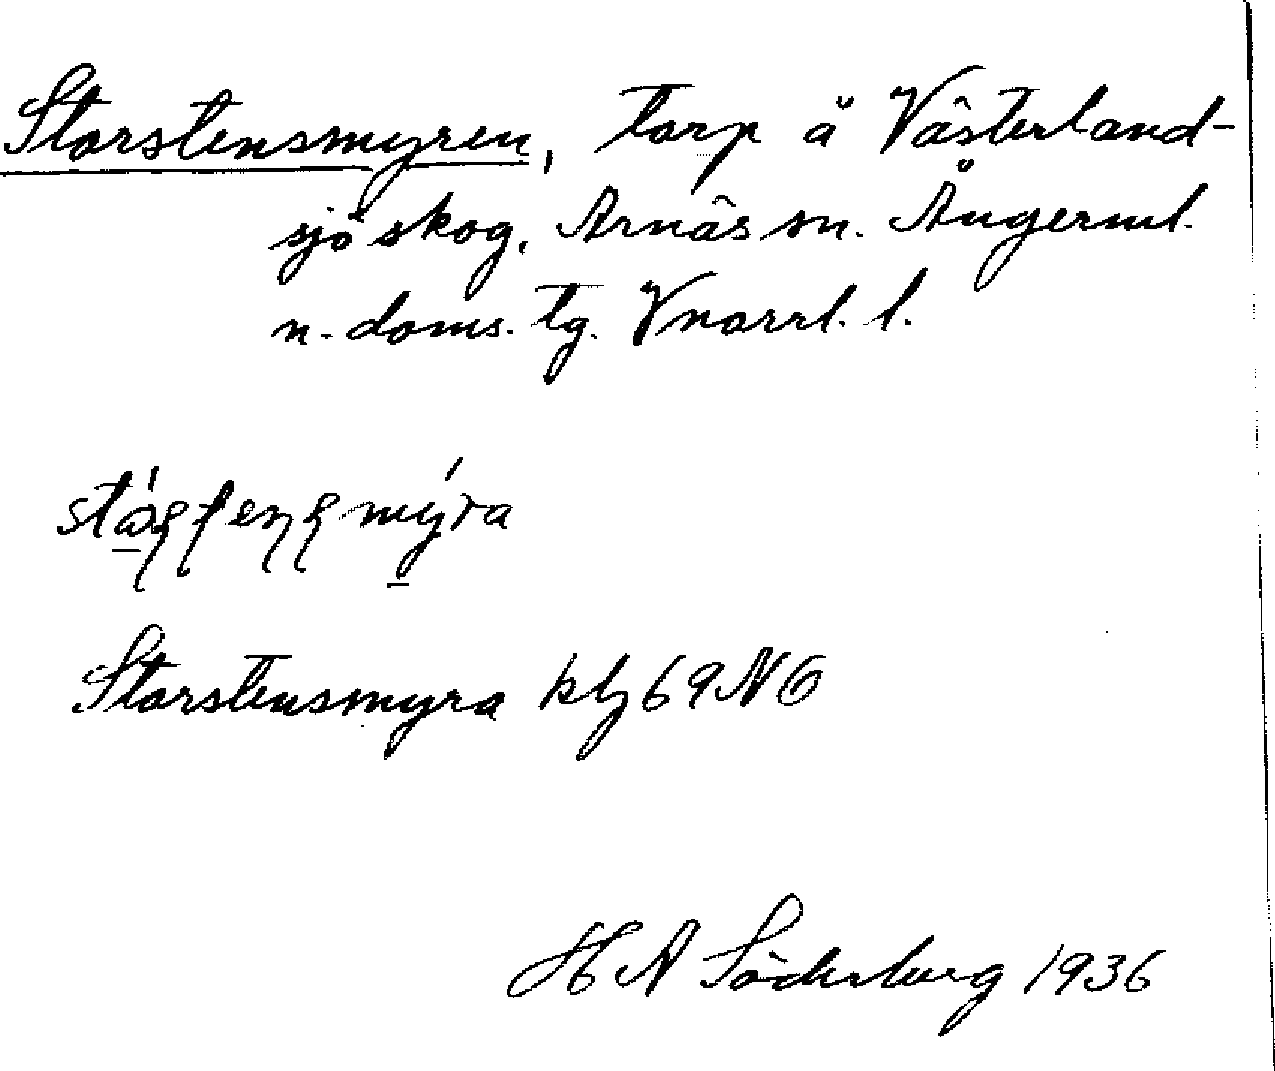 Storstensmyren, torp å Västerland-
sjö skog, Arnäs sn. Ångerml.
n. doms. tg. Vnorrl. l.
Storstensmyra kbl 69 NO
H A Söderberg 1936